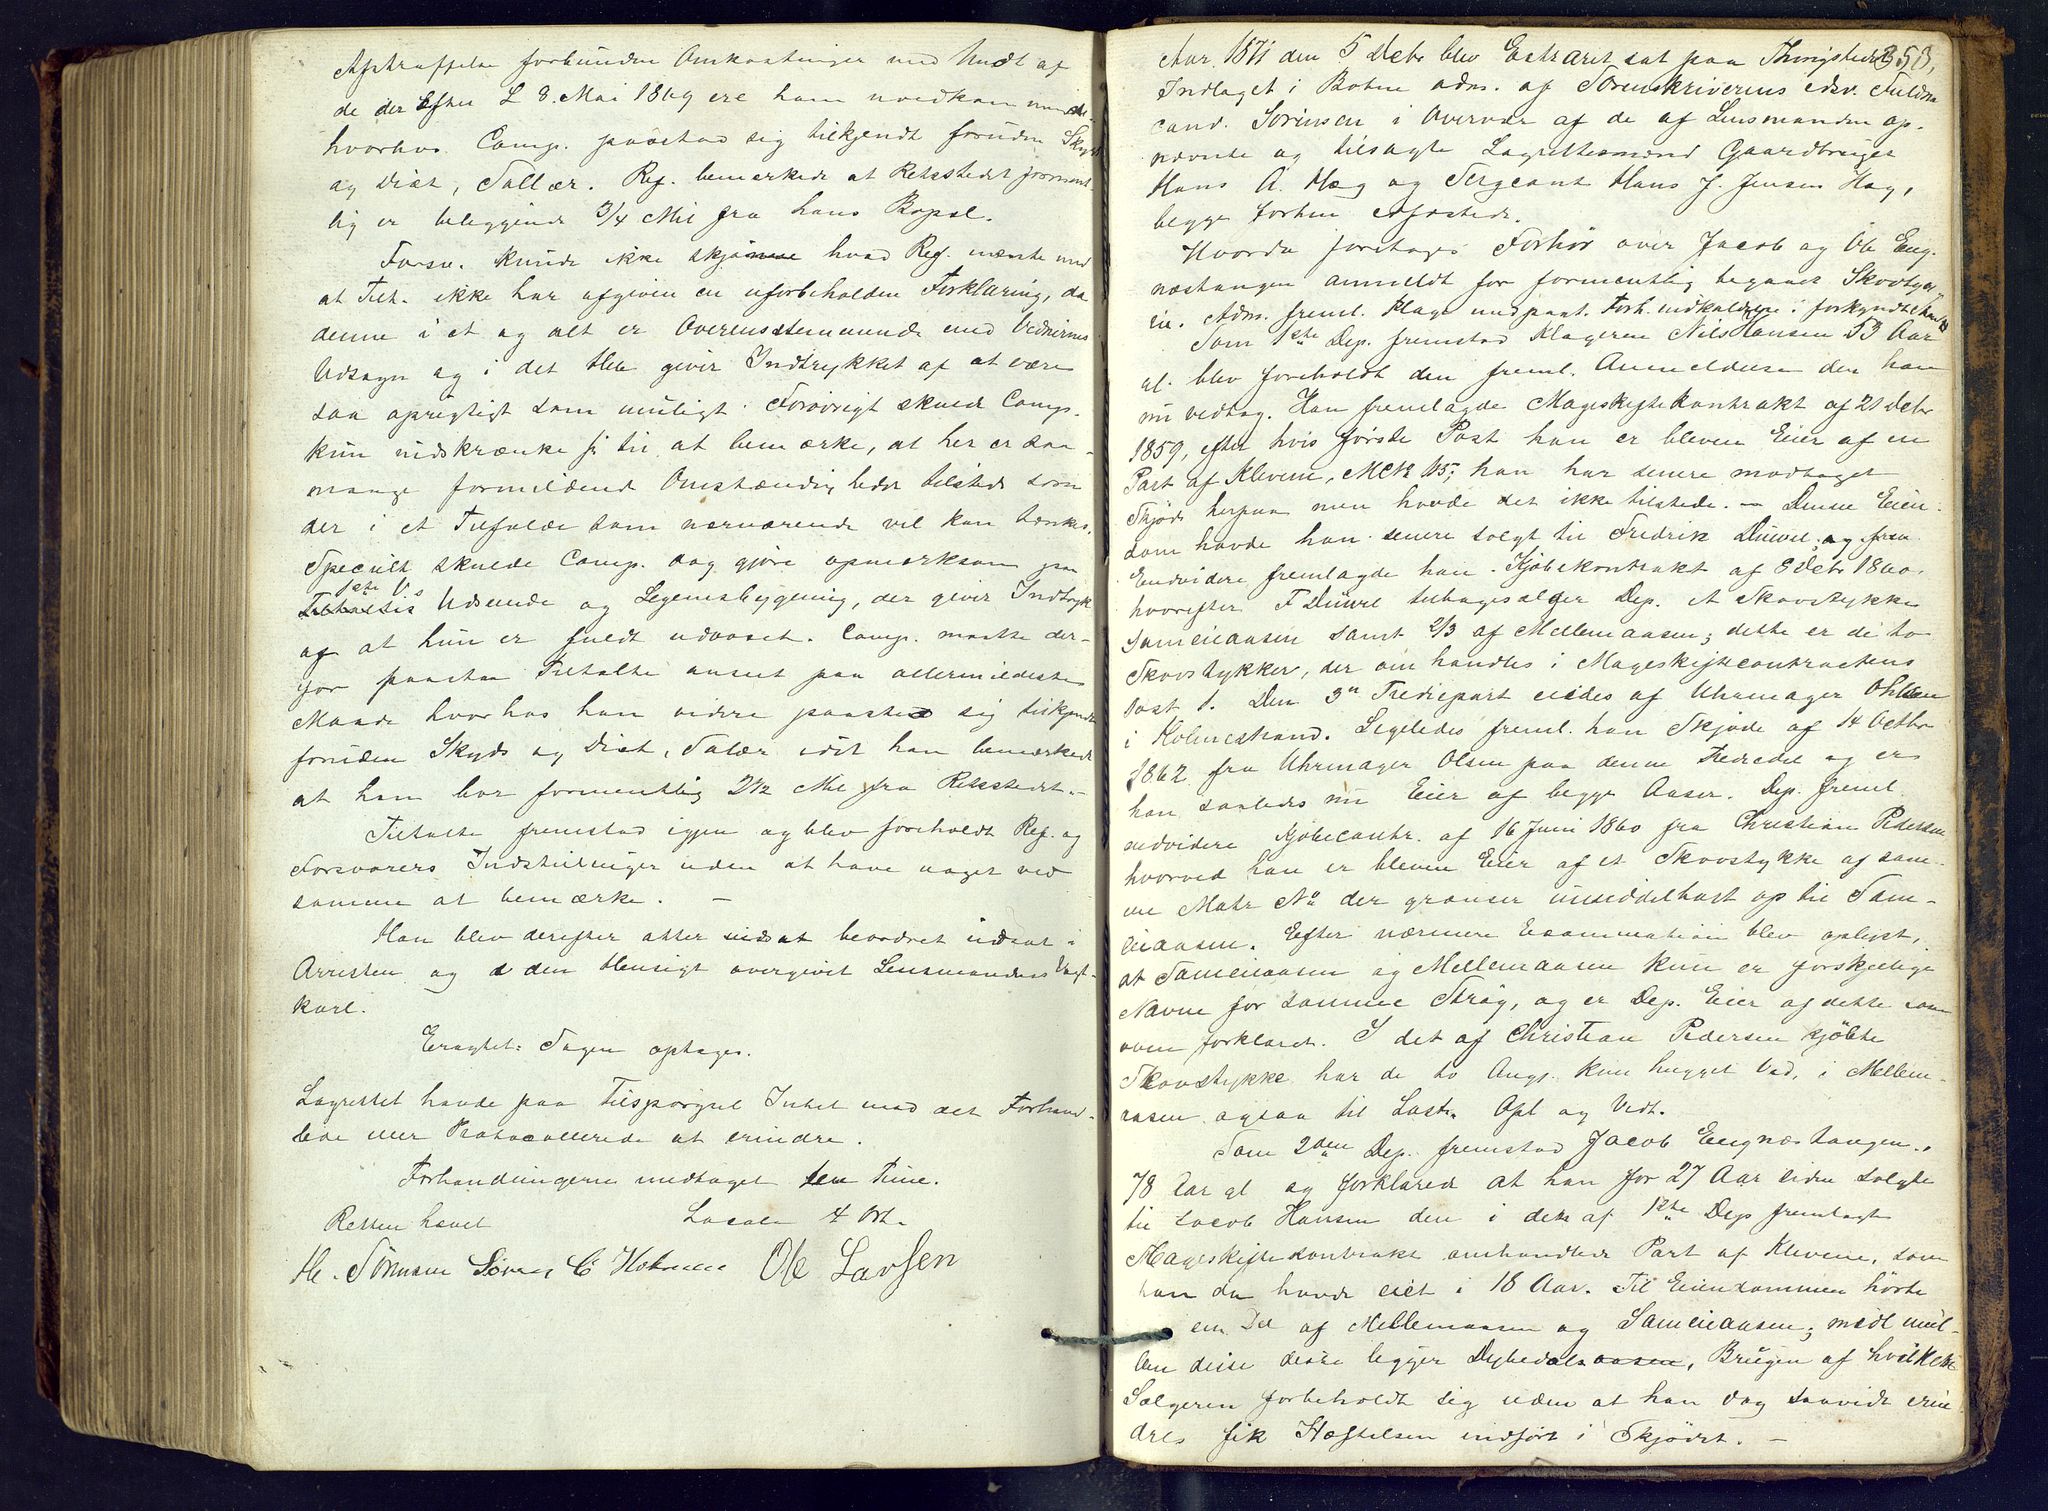 Afstraffelse forbundne Omkostninger med Undt af
de der efter L 8. Mai 1869 ere ham vedkommende
hvorhos Comp. paastod sig tilkjendt foruden Skyds
og Diæt, Sallær. Ref. bemærkede at Retsstedet formentlig
er beliggende 3/4 Mil fra hans Bopæl.
Forsv. kunde ikke skjønne hvad Ref. mente med
at Tilt. ikke har afgiven en uforbeholden Forklaring, da
denne i et og alt er Overensstemmende med Vidnernes
Udsagn og i det Hele giver Indtrykket af at være
saa oprigtigt som muligt. Forøvrigt skulde Comp.
kun indskrænke sig til at bemærke, at her er saa
mange formildende Omstændigheder tilstede som
der i et Tilfælde som nærværende vel kan tænkes.
Specielt skulde Comp. dog gjøre opmærksom paa
1ste V.s Udseende og Legemsbygning, der giver Indtryk
af at hun er fuldt udvoxet. Comp. maatte der-
for paastaa Tiltalte anset paa allermildeste
Maade hvorhos han videre paastod sig tilkjendt
foruden Skyds og Diæt, Salær idet han bemærkede
at han bor formentlig 2 1/2 Mil fra Retsstedet.-
Tiltalte fremstod igjen og blev foreholdt Ref. og
Forsvarers Indstillinger uden at have noget ved
samme at bemærke. —
Han blev derefter atter beordret indsat i
Arresten og i den Hensigt overgivet Lensmandens Vagt-
karl.
Eragtet: Sagen optages.
Lagrettet havde paa Tilspørgsel Intet mod det Forhand-
lede eller Protocollerede at erindre.
Forhandlingerne medtaget een Time.
Retten hævet
Locale 4 Ort.
H. Sørensen Søren C Holmsen Ole Larsen
353.
Aar 1871 den 5 Debr blev Extraret sat paa Thingstedet
Indlaget i Botne adm. af Sorenskriverens edsv. Fuldm.
cand. Sørensen i Overvær af de af Lensmanden op-
nævnte og tilsagte Lagrettesmænd Gaardbruger
Hans A. Hæg og Sergeant Hans J. Jensen Hag,
begge forhen edfæstede.
Hvorda foretoges Forhør over Jacob og Ole Eng-
næstangen anmeldt for formentlig begaaet Skovtyve-
rie. Adm. freml. Klage medpaat. Forh.indkaldelse i forkyndt Stand
Som 1ste Dep. fremstod Klageren Nils Hansen 53 Aar
gl. blev foreholdt den freml. Anmeldelse den han
nu vedtog. Han fremlagde Mageskiftekontrakt af 21 Debr
1859, efter hvis første Post han er bleven Eier af en
Part af Klevene, MN 115; han har senere modtaget
Skjøde herpaa men havde det ikke tilstede. — Denne Eien-
dom havde han senere solgt til Fredrik Düwel, og
Endvidere fremlagde han Kjøbekontrakt af 8 Debr 1860.
hvorefter F Düwel tilbagesælger Dep. et Skovstykke
Sameieaasen samt 2/3 af Mellemaasen; dette er de to
Skovstykker, der omhandles i Mageskiftecontractens
Post 1. Den 3die Trediepart eiedes af Uhrmager Olsen
i Holmestrand. Ligeledes freml. han Skjøde af 14 Octbr
1862 fra Uhrmager Olsen paa denne Trediedel og er
han saaledes nu Eier af begge Aaser. Dep. freml.
endvidere Kjøbecontr. af 16 Juni 1860 fra Christian Pedersen
hvorved han er bleven Eier af et Skovstykke af sam-
me Matr No der grændser umiddelbart op til Sam-
eieaasen. Efter nærmere Examination blev oplyst,
at Sameieaasen og Mellemaasen kun er forskjellige
Navne for samme Strøg, og er Dep. Eier af dette som
oven forklaret. I det af Christian Pedersen kjøbte
Skovstykke har de to Ang. kun hugget Ved, i Mellem-
aasen ogsaa til Last. Opl og Vedt.
Som 2den Dep. fremstod Jacob Engnæstangen,
78 Aar gl og forklared at han for 27 Aar siden solgte
til Jacob Hansen den i dette af 1ste Dep fremlagte
Mageskiftecontrakt omhandlede Part af Klevene, som
han da havde eiet i 18 Aar. Til Eiendommen hørte
en Del af Mellemaasen og Sameieaasen; midt mel-
lem disse ligger Dybedalsaasen, Brugen af hvilken
Sælgeren forbeholdt sig uden at han dog saavidt erin-
dres fik Hæftelsen indført i Skjødet. —